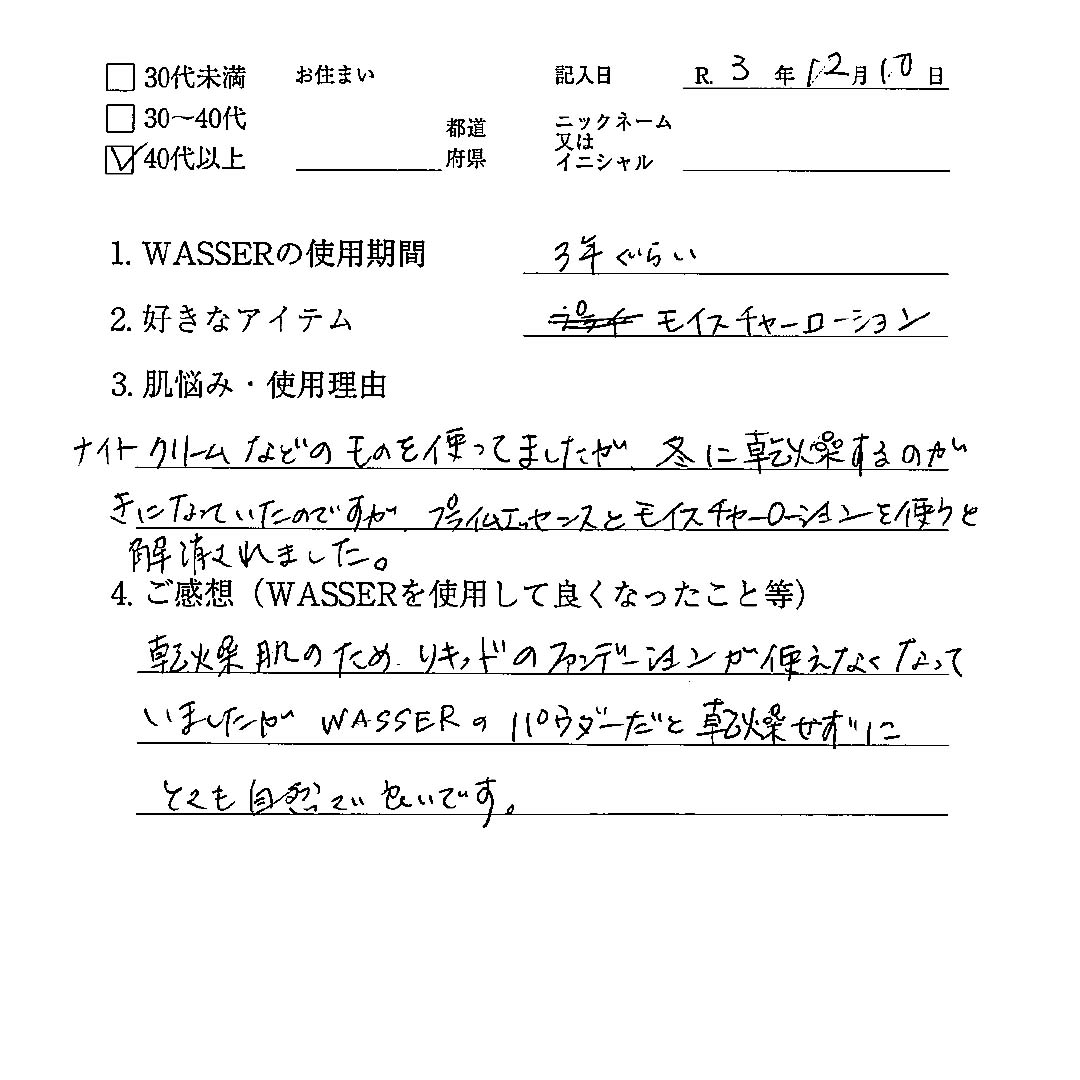 30代未満 お住まい 記入日 R. 3 年 12月 10 日
30〜40代 都道 ニックネーム
又は
40代以上 府県 イニシャル
1. WASSERの使用期間 3年ぐらい
2. 好きなアイテム モイスチャーローション
3. 肌悩み・使用理由
ナイトクリームなどのものを使ってましたが、冬に乾燥するのが
きになっていたのですが、プライムエッセンスとモイスチャーローションを使うと
解消されました。
4. ご感想（WASSERを使用して良くなったこと等）
乾燥肌のため、リキッドのファンデーションが使えなくなって
いましたが WASSERのパウダーだと乾燥せずに
とても自然で良いです。